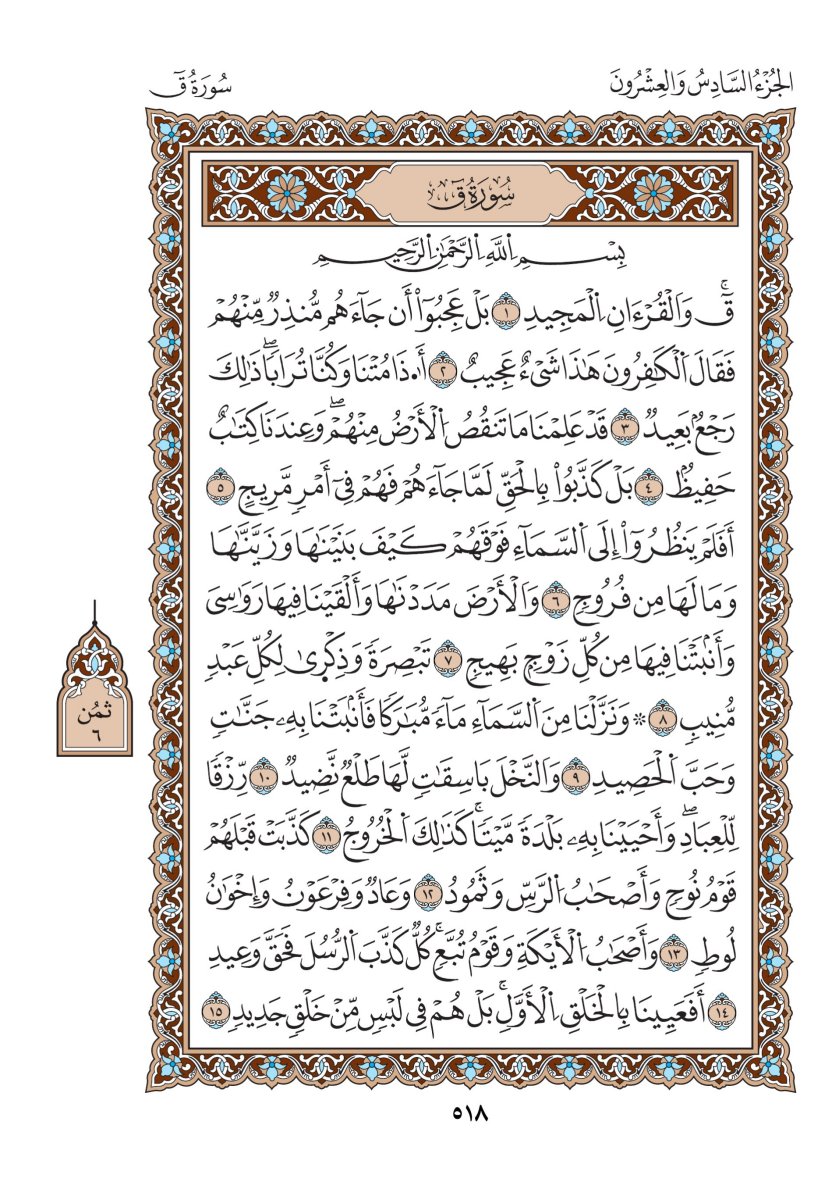 الجُزْءُ السَّادِسُ وَالعِشْرُونَ
سُورَةُ قٓ
سُورَةُ قٓ
بِسْمِ اِ۬للَّهِ اِ۬لرَّحْمَٰنِ اِ۬لرَّحِيمِ
قَٓۚ وَالْقُرْءَانِ اِ۬لْمَجِيدِ ١ بَلْ عَجِبُوٓاْ أَن جَآءَهُم مُّنذِرٌ مِّنْهُمْ
فَقَالَ اَ۬لْكَٰفِرُونَ هَٰذَا شَےْءٌ عَجِيبٌ ٢ أَ.ذَا مُتْنَا وَكُنَّا تُرَاباٗۖ ذَٰلِكَ
رَجْعُۢ بَعِيدٌ ٣ قَدْ عَلِمْنَا مَا تَنقُصُ اُ۬لْأَرْضُ مِنْهُمْۖ وَعِندَنَا كِتَٰبٌ
حَفِيظُۢ ٤ بَلْ كَذَّبُواْ بِالْحَقِّ لَمَّا جَآءَهُمْ فَهُمْ فِےٓ أَمْرٖ مَّرِيجٍ ٥
أَفَلَمْ يَنظُرُوٓاْ إِلَي اَ۬لسَّمَآءِ فَوْقَهُمْ كَيْفَ بَنَيْنَٰهَا وَزَيَّنَّٰهَا
وَمَا لَهَا مِن فُرُوجٖ ٦ وَالْأَرْضَ مَدَدْنَٰهَا وَأَلْقَيْنَا فِيهَا رَوَٰسِيَ
وَأَنۢبَتْنَا فِيهَا مِن كُلِّ زَوْجِۢ بَهِيجٖ ٧ تَبْصِرَةٗ وَذِكْر۪يٰ لِكُلِّ عَبْدٖ
مُّنِيبٖ ٨ ۞ وَنَزَّلْنَا مِنَ اَ۬لسَّمَآءِ مَآءٗ مُّبَٰرَكاٗ فَأَنۢبَتْنَا بِهِۦ جَنَّٰتٖ
وَحَبَّ اَ۬لْحَصِيدِ ٩ وَالنَّخْلَ بَاسِقَٰتٖ لَّهَا طَلْعٌ نَّضِيدٌ ١٠ رِّزْقاٗ
لِّلْعِبَادِۖ وَأَحْيَيْنَا بِهِۦ بَلْدَةٗ مَّيْتاٗۚ كَذَٰلِكَ اَ۬لْخُرُوجُ ١١ كَذَّبَتْ قَبْلَهُمْ
قَوْمُ نُوحٖ وَأَصْحَٰبُ اُ۬لرَّسِّ وَثَمُودُ ١٢ وَعَادٞ وَفِرْعَوْنُ وَإِخْوَٰنُ
لُوطٖ ١٣ وَأَصْحَٰبُ اُ۬لْأَيْكَةِ وَقَوْمُ تُبَّعٖۚ كُلّٞ كَذَّبَ اَ۬لرُّسُلَ فَحَقَّ وَعِيدِ
١٤ أَفَعَيِينَا بِالْخَلْقِ اِ۬لْأَوَّلِۚ بَلْ هُمْ فِے لَبْسٖ مِّنْ خَلْقٖ جَدِيدٖ ١٥
ثمُن
٦
٥١٨